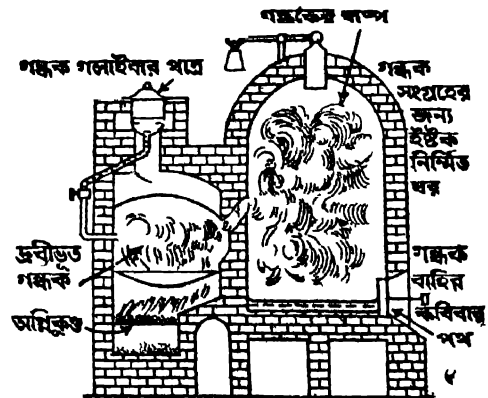 গন্ধকের বাষ্প
গন্ধক গলাইবার পাত্র
গন্ধক
সংগ্রহের
জন্য
ইষ্টক
নির্ম্মিত
ঘর
দ্রবীভূত
গন্ধক
অগ্নিকুণ্ড
গন্ধক
বাহির
করিবার
পথ